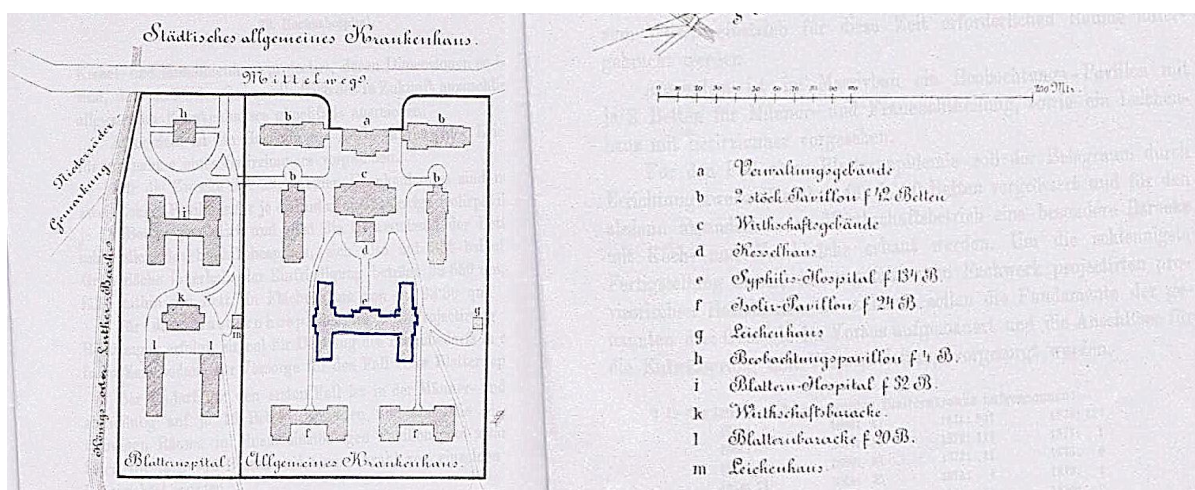 Städtisches allgemeines Krankenhaus.
Mittelweg.
h
b
a
b
Niederräder
Gemarkung
b
c
b
d
i
k
m
g
l
l
Königs- oder Luther-Bach
f
f
Blatternspital:
Allgemeines Krankenhaus.
200 Mtr.
Verwaltungsgebäude
b 2 stöck. Pavillon f 42 Betten
c Wirthschaftsgebäude
d Kesselhaus
e Syphilis-Hospital f 134 B.
f Isolir-Pavillon f 24 B.
g Leichenhaus
h Beobachtungspavillon f 4 B.
i Blattern-Hospital f 52 B.
k Wirthschaftsbaracke.
l Blatternbaracke f 20 B.
m Leichenhaus